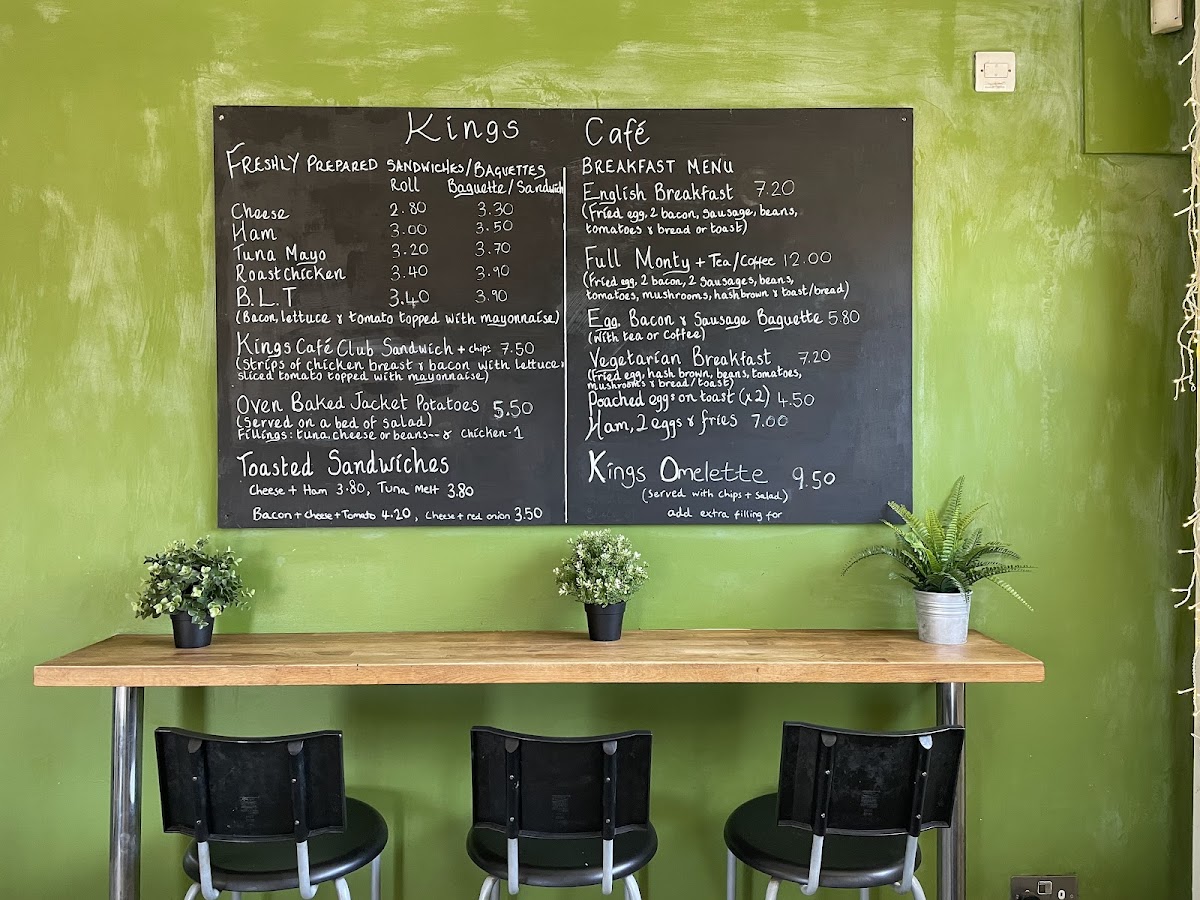 Kings Café
FRESHLY PREPARED SANDWICHES/BAGUETTES
Roll Baguette/Sandwich
Cheese 2.80 3.30
Ham 3.00 3.50
Tuna Mayo 3.20 3.70
Roast chicken 3.40 3.90
B.L.T 3.40 3.90
(Bacon, lettuce & tomato topped with mayonnaise)
Kings Café Club Sandwich + chips 7.50
(Strips of chicken breast & bacon with lettuce,
sliced tomato topped with mayonnaise)
Oven Baked Jacket Potatoes 5.50
(Served on a bed of salad)
Fillings: tuna, cheese or beans -- & chicken - 1
Toasted Sandwiches
Cheese + Ham 3.80, Tuna Melt 3.80
Bacon + Cheese + Tomato 4.20, Cheese + red onion 3.50
BREAKFAST MENU
English Breakfast 7.20
(Fried egg, 2 bacon, sausage, beans,
tomatoes & bread or toast)
Full Monty + Tea/Coffee 12.00
(Fried egg, 2 bacon, 2 sausages, beans,
tomatoes, mushrooms, hash brown & toast/bread)
Egg Bacon & Sausage Baguette 5.80
(with tea or coffee)
Vegetarian Breakfast 7.20
(Fried egg, hash brown, beans, tomatoes,
mushrooms & bread/toast)
Poached eggs on toast (x2) 4.50
Ham, 2 eggs & fries 7.00
Kings Omelette 9.50
(Served with chips + salad)
add extra filling for